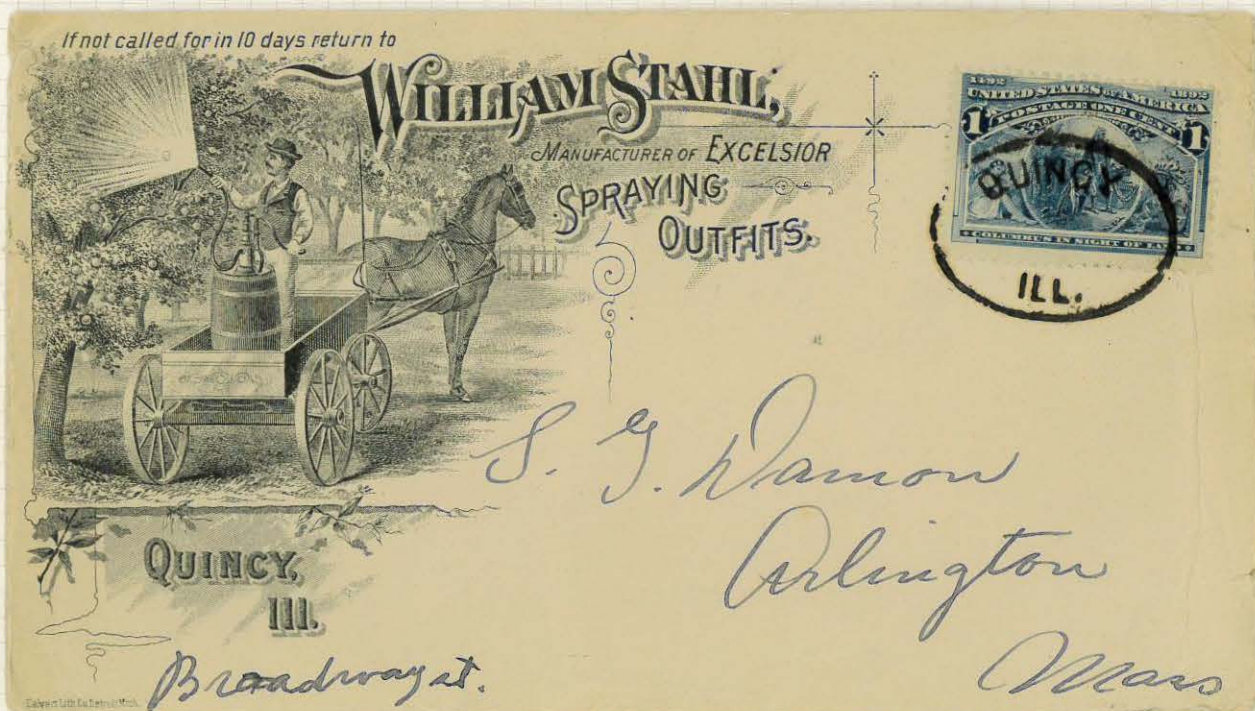 If not called for in 10 days return to
WILLIAM STAHL,
MANUFACTURER OF EXCELSIOR
SPRAYING
OUTFITS.
1492 1892
UNITED STATES OF AMERICA
POSTAGE ONE CENT
1 1
COLUMBUS IN SIGHT OF LAND
QUINCY
ILL.
S. G. Damon
Arlington
Mass
QUINCY,
Ill.
Broadway st.
Calvert Lith Co. Detroit, Mich.